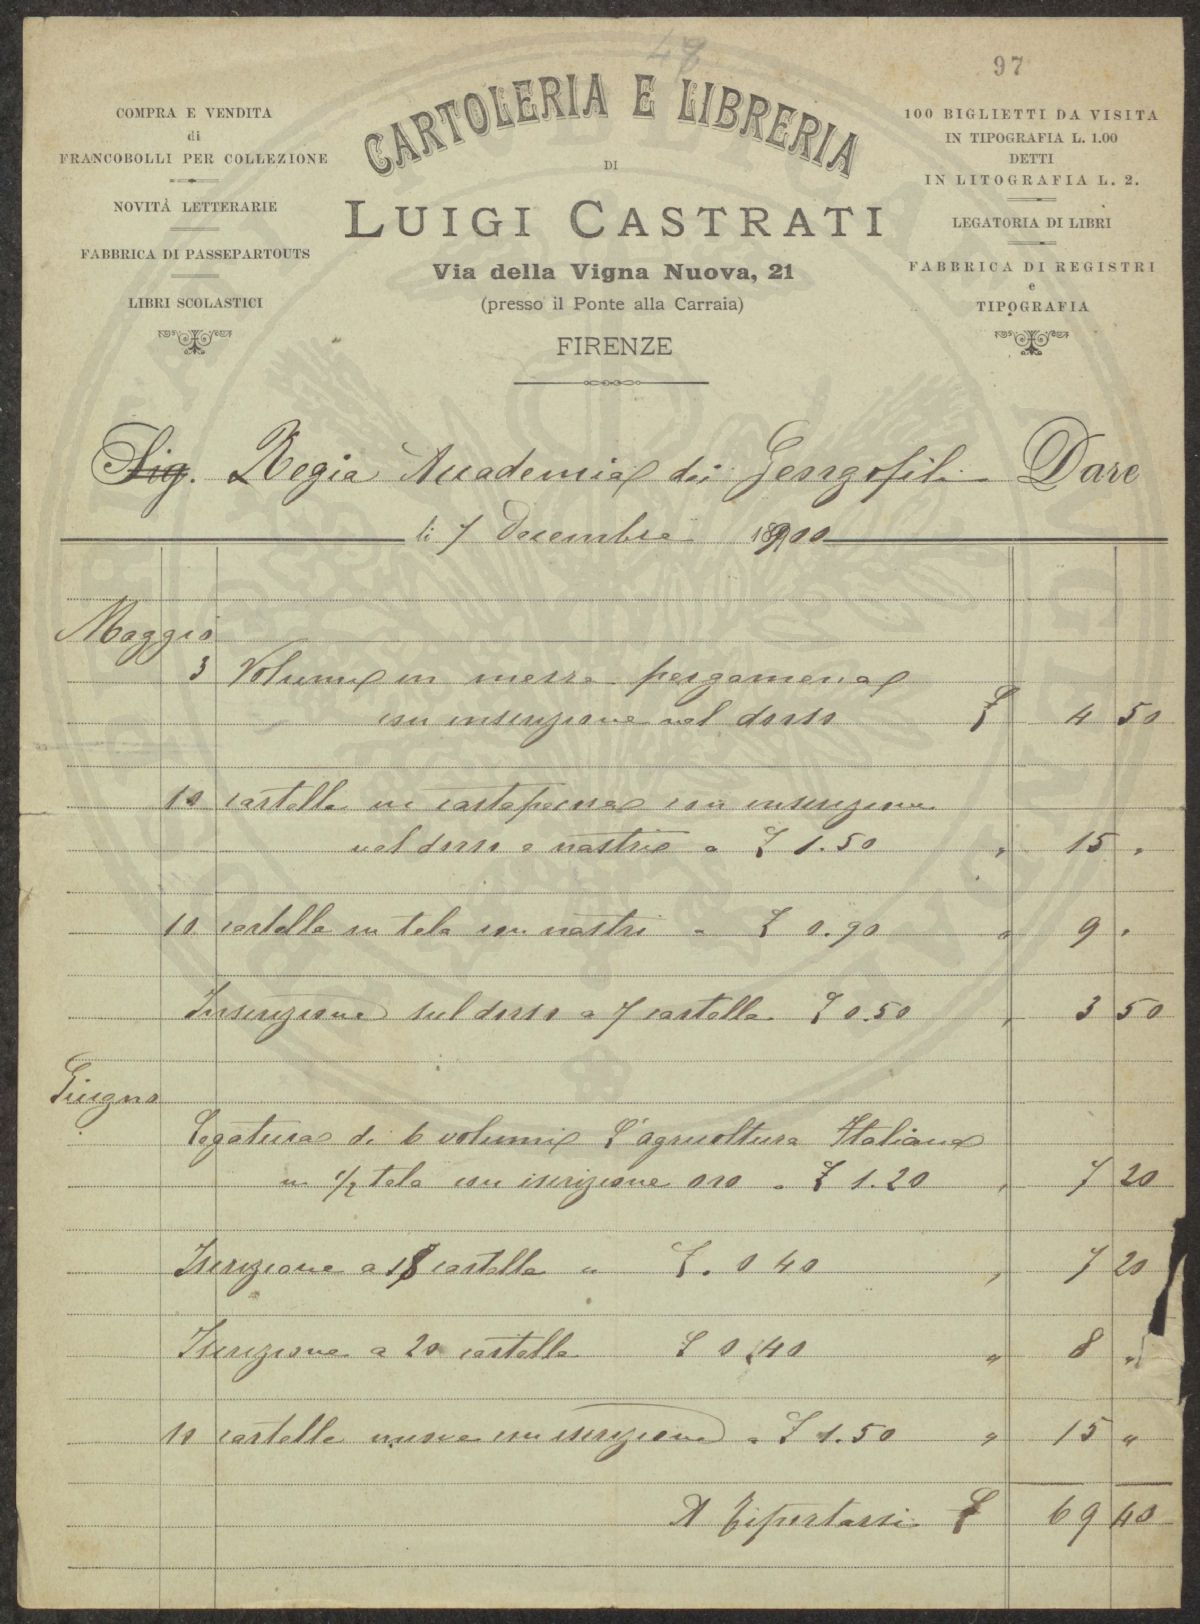 48
97
COMPRA E VENDITA
di
FRANCOBOLLI PER COLLEZIONE
NOVITÁ LETTERARIE
FABBRICA DI PASSEPARTOUTS
LIBRI SCOLASTICI
CARTOLERIA E LIBRERIA
DI
LUIGI CASTRATI
Via della Vigna Nuova, 21
(presso il Ponte alla Carraia)
FIRENZE
100 BIGLIETTI DA VISITA
IN TIPOGRAFIA L. 1.00
DETTI
IN LITOGRAFIA L. 2.
LEGATORIA DI LIBRI
FABBRICA DI REGISTRI
e
TIPOGRAFIA
Sig. Regia Accademia dei Gergofili Dare
li 7 Decembre 1900
Maggio
3 Volumi in mezza pergamena
con inscrizione nel dorso £ 4 50
10 cartelle in cartapecora con inscrizione
nel dorso e nastri a £ 1.50 " 15 "
10 cartelle in tela con nastri a £ 0.90 " 9 "
Inscrizione sul dorso a 7 cartelle £ 0.50 " 3 50
Giugno
Legatura di 6 volumi L'agricoltura Italiana
in 1/2 tela con iscrizione oro a £ 1.20 " 7 20
Iscrizione a 18 cartelle a £. 0 40 " 7 20
Iscrizione a 20 cartelle £ 0,40 " 8 "
10 cartelle nuove con iscrizione a £ 1.50 " 15 "
A Riportarsi £ 69 40